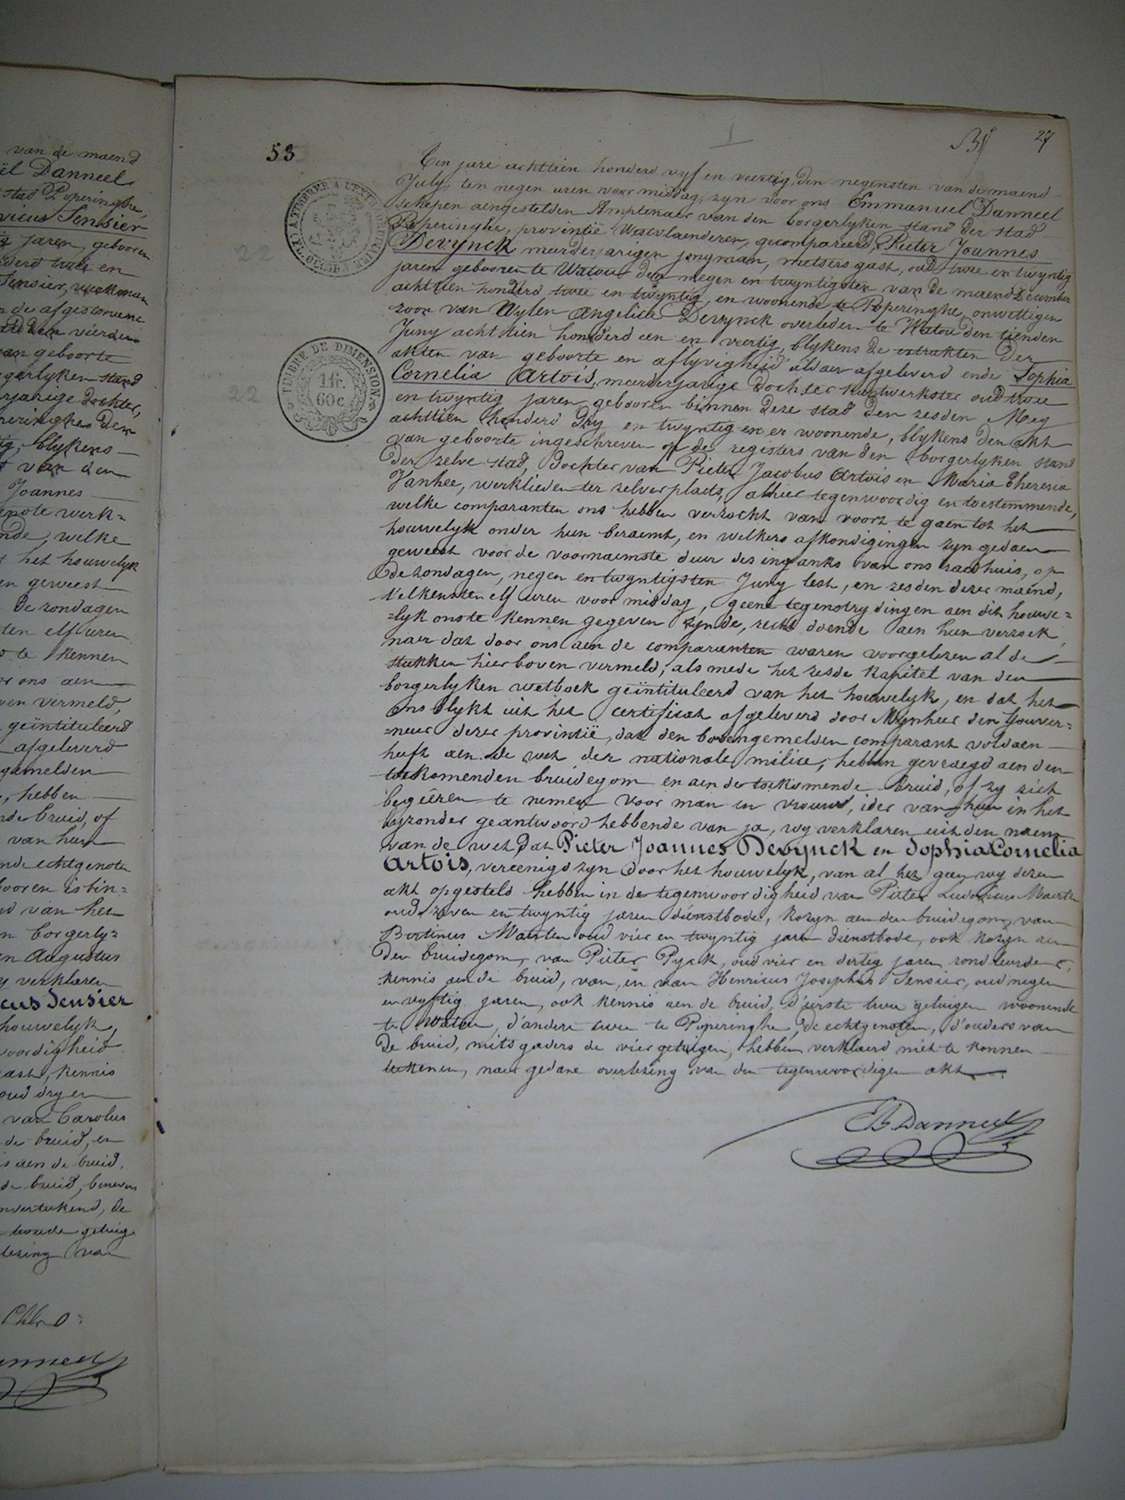 van de maend
Danneel
stad Poperinghe,
Sensier
jaren, geboren
en
Sensier, werkman
de afgestorvene
den vierden
van geboorte
borgerlyken stand
dochter,
Poperinghe den
blykens
van den
Joannes
werk=
welke
het houwelyk
geweest
de zondagen
ten elf uren
te kennen
ons aen
boven vermeld,
geïntituleerd
afgeleverd
hebben
bruid, of
van hun
echtgenote
geboren is bin=
van het
borgerly=
Augustus
wy verklaren
Sensier
houwelyk,
kennis
oud dry en
van Carolus
de bruid, en
aen de bruid,
de bruid,
de
getuige
van
Danneel
53
27
22
TIMBRE DE DIMENSION
1 fr.
60 c
22
Een jare achttien honderd vyf en veertig, den negensten van de maend
July, ten negen uren voor middag, zyn voor ons Emmanuel Danneel
schepen aengestelden Amptenaer van den borgerlyken stand der stad
Poperinghe, provintie Westvlaenderen, gecompareerd, Pieter Joannes
Devynck, meerderjarigen jongman, metsers gast, oud twee en twyntig
jaren geboren te Watou den negen en twyntigsten van de maend December
achttien honderd twee en twyntig, en woonende te Poperinghe, onwettigen
zoon van Wylen Angelica Devynck overleden te Watou den tienden
Juny achttien honderd een en veertig, blykens de extrakten der
akten van geboorte en aflyvigheid aldaer afgeleverd ende Sophia
Cornelia Artois, meerderjarige dochter kantwerkster oud twee
en twyntig jaren, geboren binnen deze stad den zesden Mey
achttien honderd dry en twyntig en er woonende, blykens den akt
van geboorte ingeschreven op de registers van den borgerlyken stand
der zelve stad, Dochter van Pieter Jacobus Artois en Maria Theresia
Vanhee, werklieden ter zelver plaets, alhier tegenwoordig en toestemmende,
welke comparanten ons hebben verzocht van voort te gaen tot het
houwelyk onder hun beraemt, en welkers afkondigingen zyn gedaen
geweest voor de voornaemste deur des ingangs van ons raedhuis, op
de zondagen, negen en twyntigsten Juny lest, en zesden dezer maend,
t'elkens ten elf uren voor middag, geene tegenstrydingen aen dit houwe=
=lyk ons te kennen gegeven zynde, recht doende aen hun verzoek
naer dat door ons aen de comparanten waren voorgelezen al de
stukken hier boven vermeld, als mede het zesde kapitel van den
borgerlyken wetboek geïntituleerd van het houwelyk, en dat het
ons blykt uit het certificat afgeleverd door Mynheer den Gouver-
=neur dezer provintië, dat den bovengemelden comparant voldaen
heeft aen de wet der nationale milice, hebben gevraegd aen den
toekomenden bruidegom en aen de toekomende Bruid, of zy zich
begeëren te nemen voor man en vrouw, ider van hun in het
byzonder geantwoord hebbende van ja, wy verklaren uit den naem
van de wet, dat Pieter Joannes Devynck en Sophia Cornelia
Artois, vereenigd zyn door het houwelyk, van al het geen wy dezen
akt opgesteld hebben in de tegenwoordigheid van Pieter Ludovicus Maerten
oud zeven en twyntig jaren dienstbode, kozyn aen den bruidegom, van
Bertinus Maerten oud vier en twyntig jaren dienstbode, ook kozyn aen
den bruidegom, van Pieter Pyck, oud vier en dertig jaren,
kennis aen de bruid, van, en van Henricus Josephus Sensier, oud negen
en vyftig jaren, ook kennis aen de bruid, d'eerste twee getuigen woonende
te Watou, d'andere twee te Poperinghe, de echtgenoten, d'ouders van
de bruid, mitsgaders de vier getuigen, hebben verklaerd niet te konnen
teekenen, naer gedane overlezing van den tegenwoordigen akt
Danneel